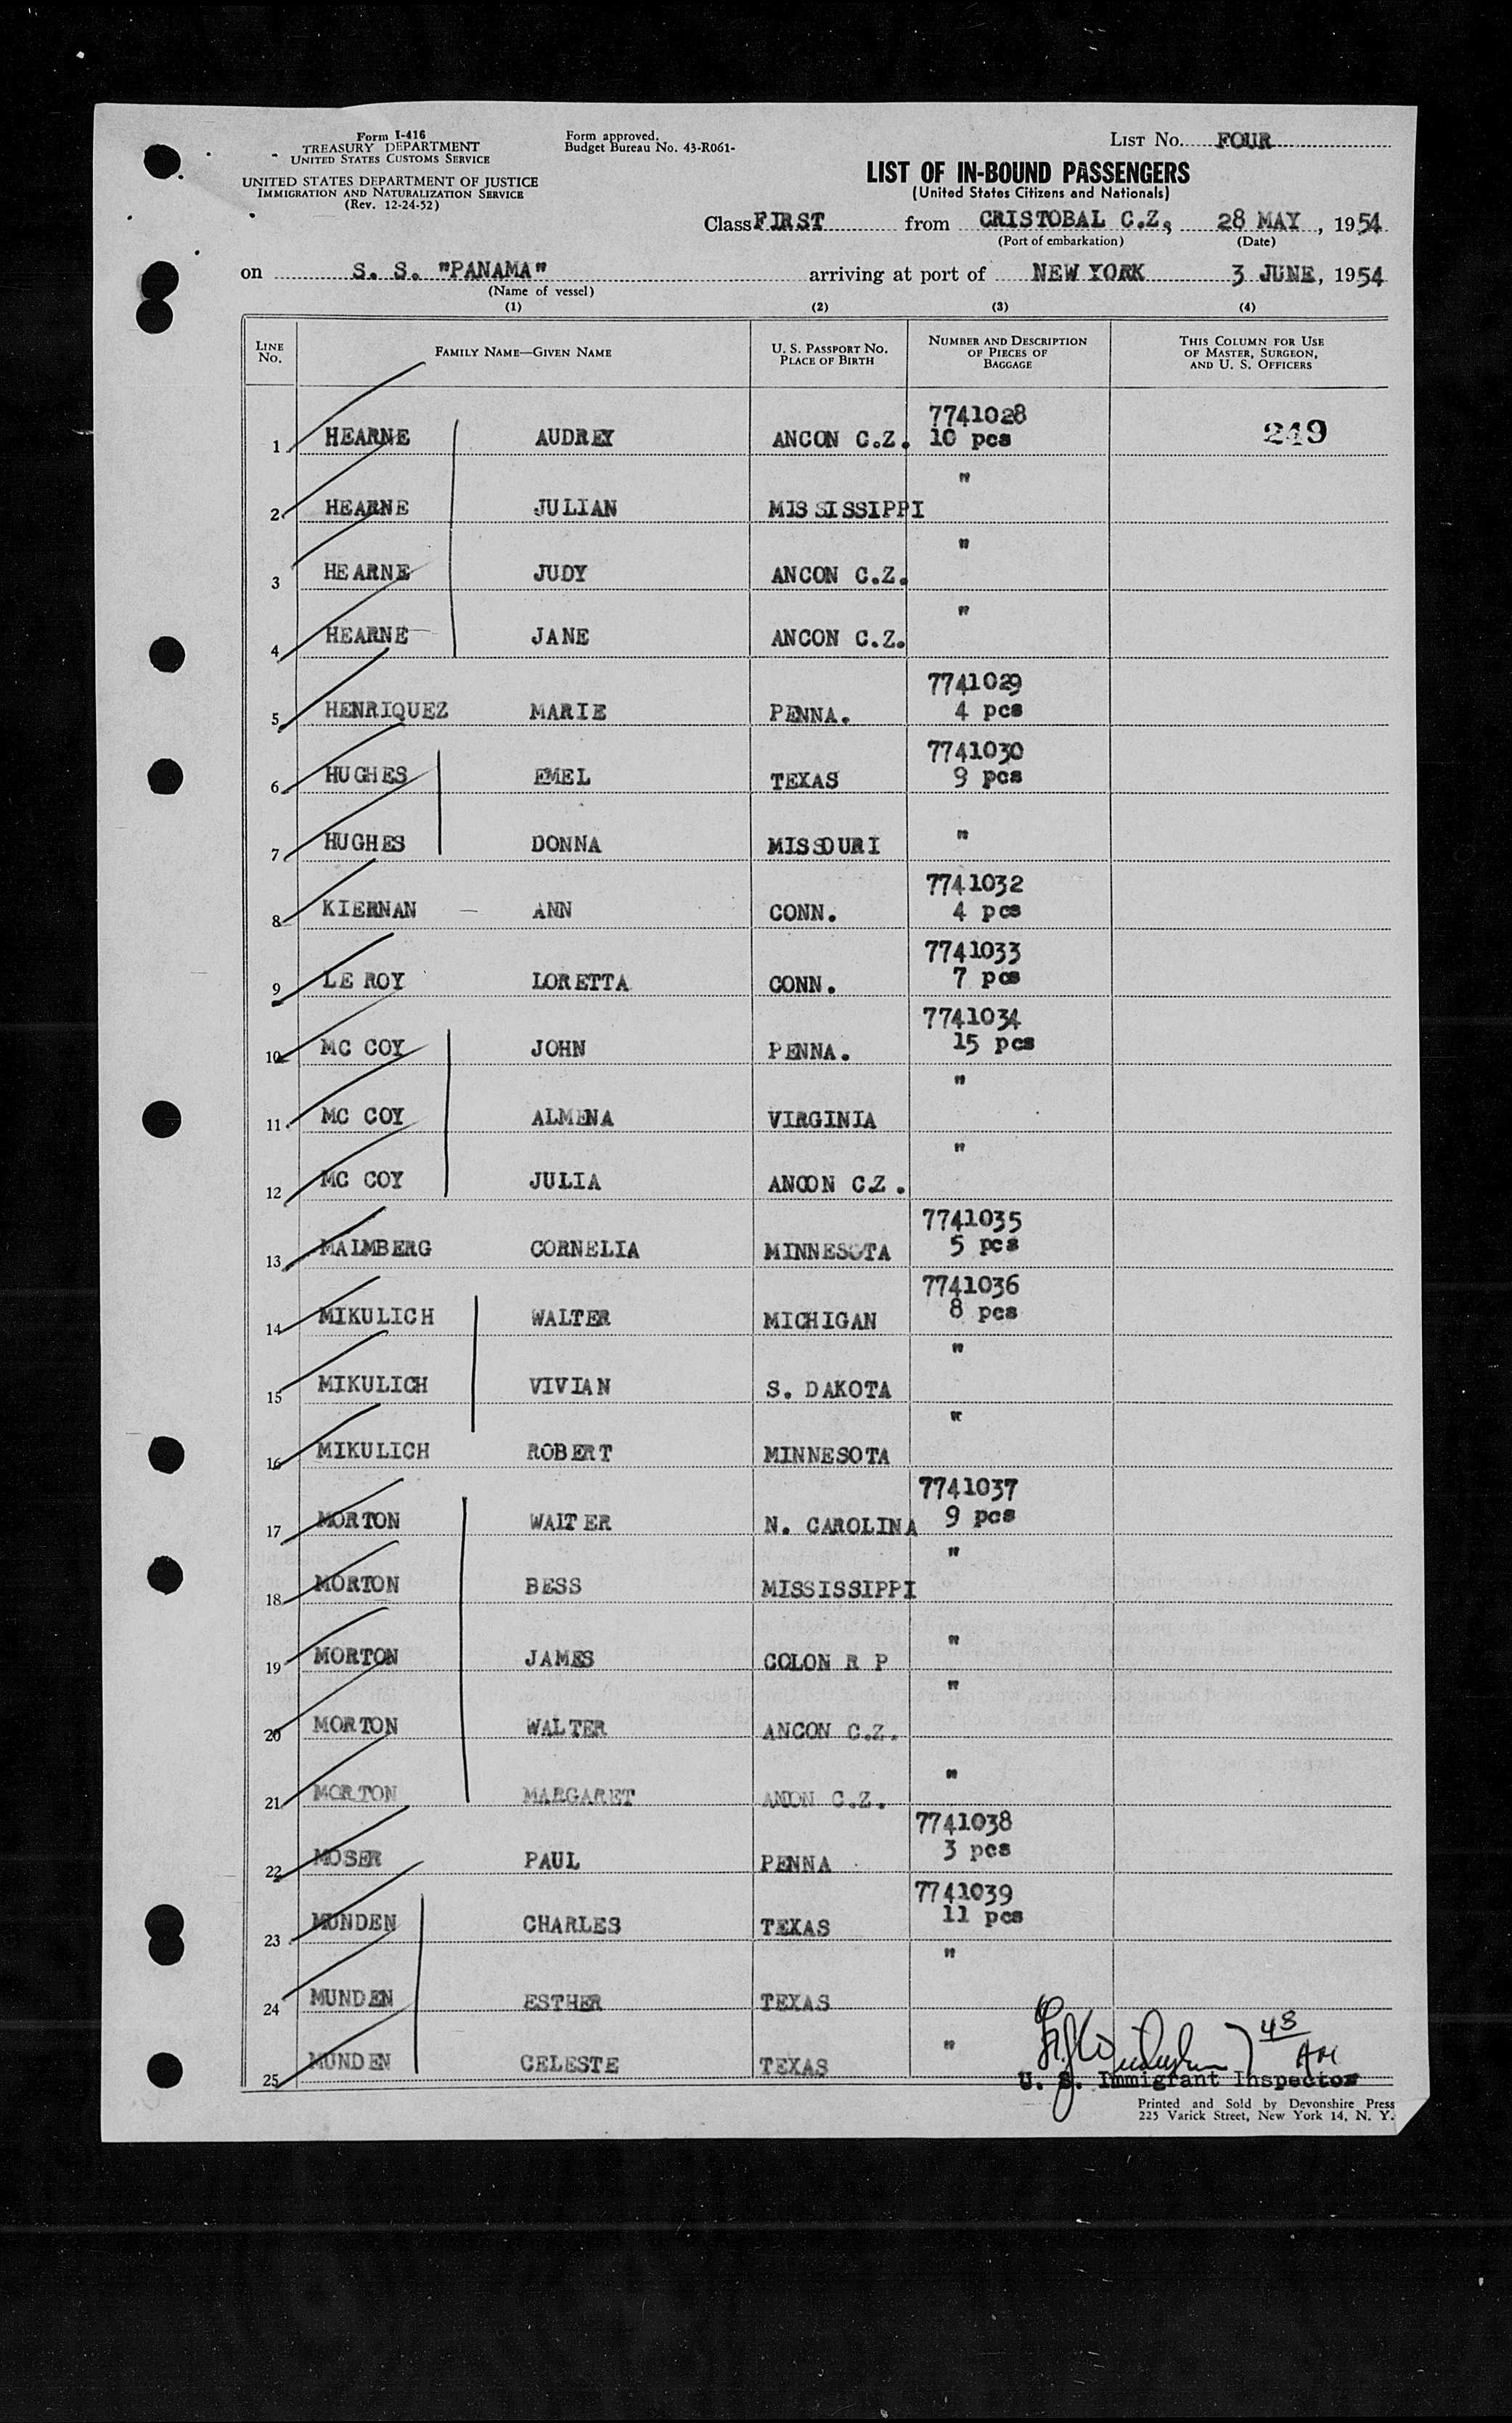 Form I-416
TREASURY DEPARTMENT
UNITED STATES CUSTOMS SERVICE
UNITED STATES DEPARTMENT OF JUSTICE
IMMIGRATION AND NATURALIZATION SERVICE
(Rev. 12-24-52)
Form approved.
Budget Bureau No. 43-R061-
LIST No. FOUR
LIST OF IN-BOUND PASSENGERS
(United States Citizens and Nationals)
Class FIRST from CRISTOBAL C.Z, 28 MAY, 1954
(Port of embarkation) (Date)
on S. S. "PANAMA" arriving at port of NEW YORK 3 JUNE, 1954
(Name of vessel)
(1) (2) (3) (4)
LINE No. FAMILY NAME—GIVEN NAME U. S. PASSPORT NO. PLACE OF BIRTH NUMBER AND DESCRIPTION OF PIECES OF BAGGAGE THIS COLUMN FOR USE OF MASTER, SURGEON, AND U. S. OFFICERS
7741028
1 HEARNE AUDREY ANCON C.Z. 10 pcs 249
"
2 HEARNE JULIAN MISSISSIPPI
"
3 HEARNE JUDY ANCON C.Z.
"
4 HEARNE JANE ANCON C.Z.
7741029
5 HENRIQUEZ MARIE PENNA. 4 pcs
7741030
6 HUGHES EMEL TEXAS 9 pcs
7 HUGHES DONNA MISSOURI "
7741032
8 KIERNAN — ANN CONN. 4 pcs
7741033
9 LE ROY LORETTA CONN. 7 pcs
7741034
10 MC COY JOHN PENNA. 15 pcs
"
11 MC COY ALMENA VIRGINIA
"
12 MC COY JULIA ANCON C.Z.
7741035
13 MALMBERG CORNELIA MINNESOTA 5 pcs
7741036
14 MIKULICH WALTER MICHIGAN 8 pcs
"
15 MIKULICH VIVIAN S. DAKOTA
"
16 MIKULICH ROBERT MINNESOTA
7741037
17 MORTON WALTER N. CAROLINA 9 pcs
"
18 MORTON BESS MISSISSIPPI
"
19 MORTON JAMES COLON R P
"
20 MORTON WALTER ANCON C.Z.
"
21 MORTON MARGARET ANCON C.Z.
7741038
22 MOSER PAUL PENNA 3 pcs
7741039
23 MUNDEN CHARLES TEXAS 11 pcs
"
24 MUNDEN ESTHER TEXAS
"
25 MUNDEN CELESTE TEXAS
43
U. S. Immigrant Inspector
Printed and Sold by Devonshire Press
225 Varick Street, New York 14, N. Y.